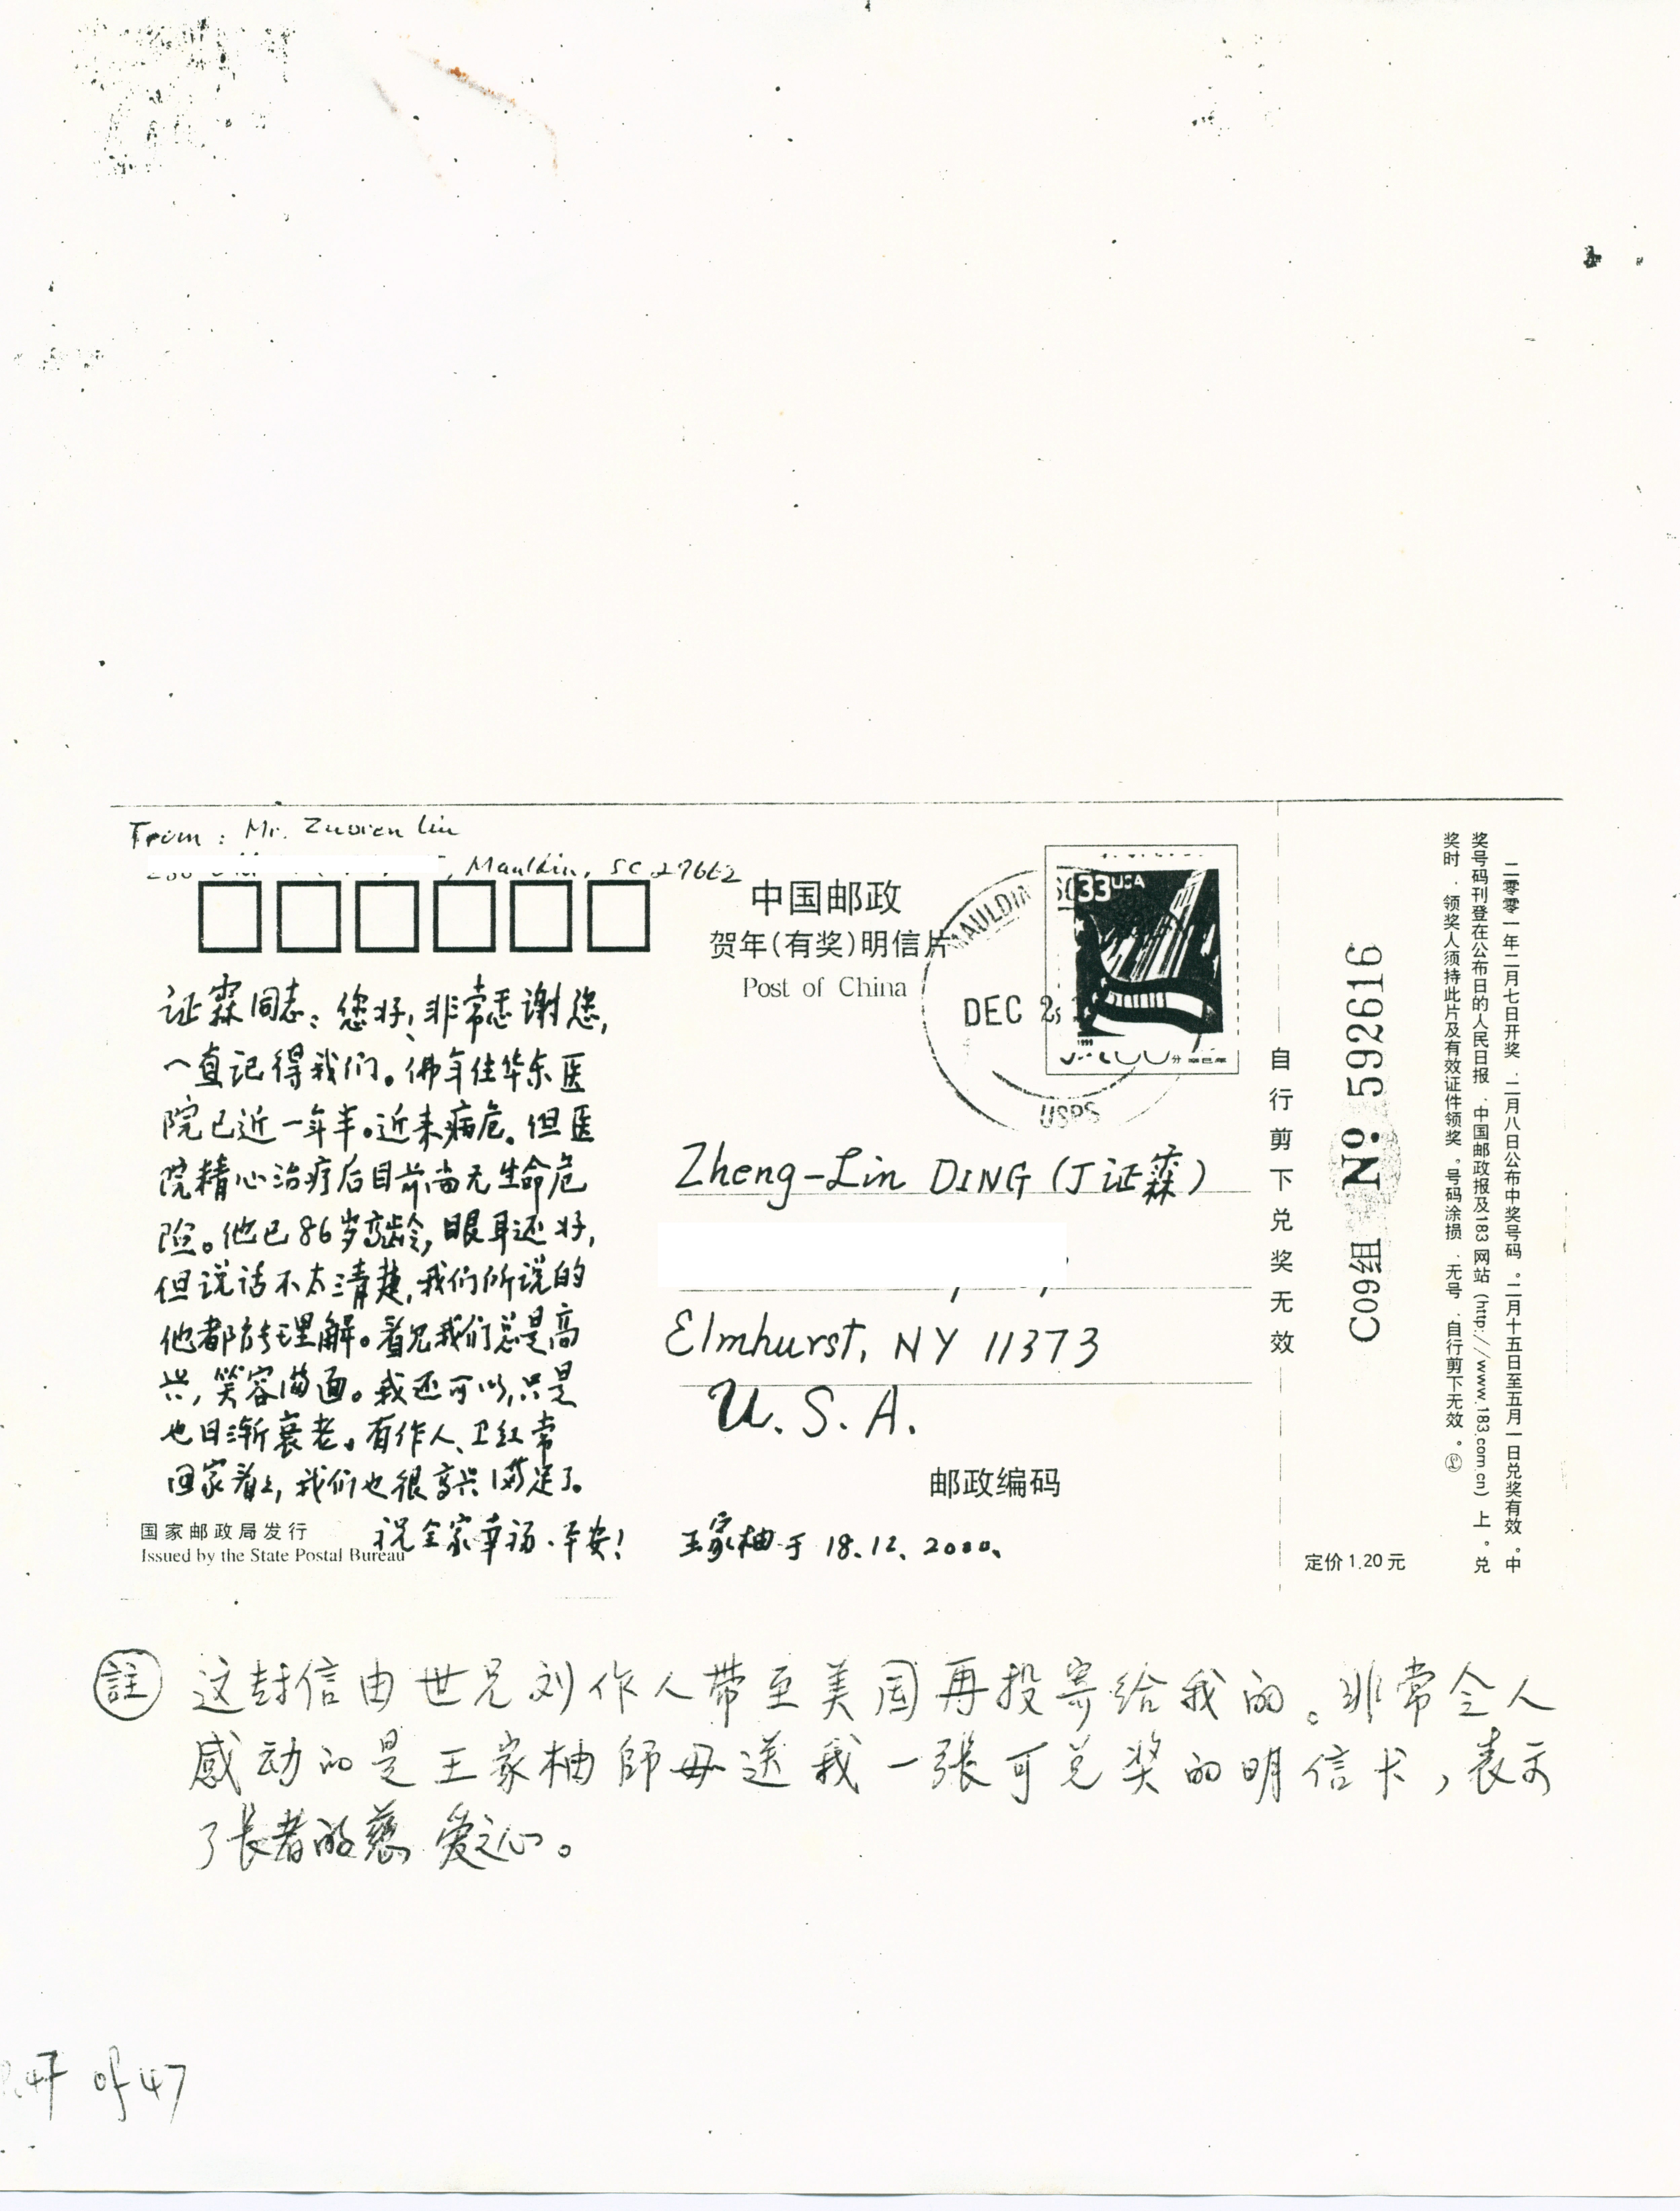 From: Mr. Zuoren Liu
, Mauldin, SC 29662
中国邮政
贺年(有奖)明信片
Post of China
MAULDIN SC
DEC 2
USPS
33USA
1999
证霖同志：您好！非常感谢您，
一直记得我们。佛年住华东医
院已近一年半。近来病危。但医
院精心治疗后目前尚无生命危
险。他已86岁高龄，眼耳还好，
但说话不太清楚，我们所说的
他都能理解。看见我们总是高
兴，笑容满面。我还可以，只是
也日渐衰老。有作人、卫红常
回家看看，我们也很高兴满足了。
祝全家幸福、平安！
王家柚于 18.12.2000.
国家邮政局发行
Issued by the State Postal Bureau
Zheng-Lin DING (丁证霖)
Elmhurst, NY 11373
U.S.A.
邮政编码
自行剪下兑奖无效
C09组 Nº 592616
定价1.20元
二零零一年二月七日开奖．二月八日公布中奖号码。二月十五日至五月一日兑奖有效。中
奖号码刊登在公布日的人民日报．中国邮政报及183网站(http://www.183.com.cn)上。兑
奖时．领奖人须持此片及有效证件领奖。号码涂损．无号．自行剪下无效。
註 这封信由世兄刘作人带至美国再投寄给我的。非常令人
感动的是王家柚師母送我一張可兑奖的明信卡，表示
了長者的慈爱之心。
of 47